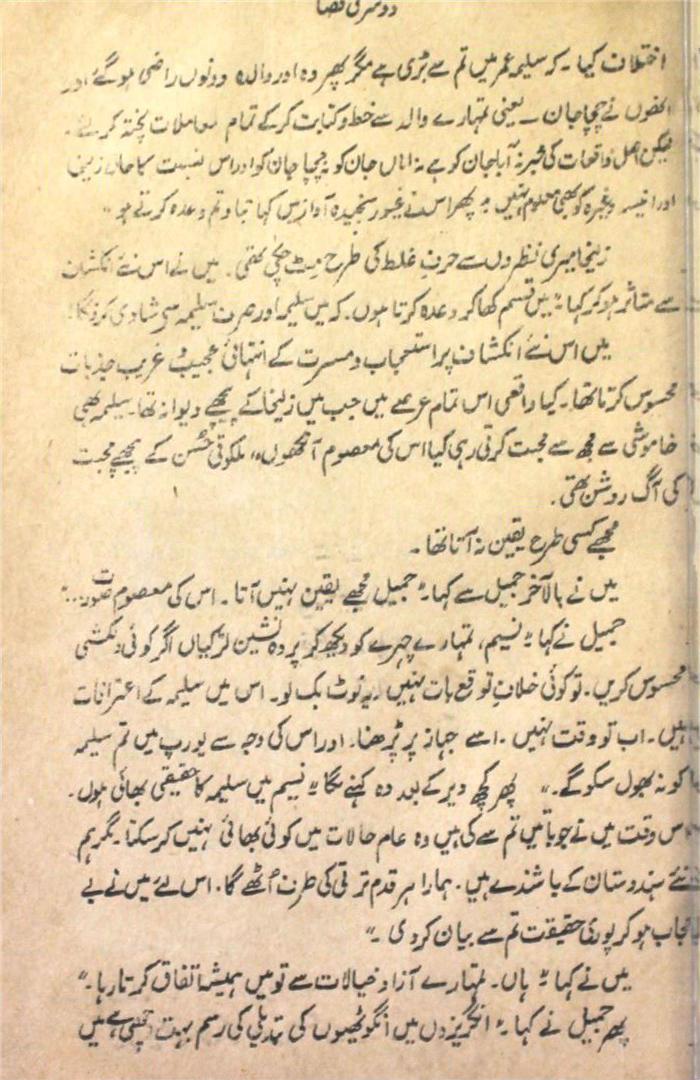 دوسری قضا
اختلاف کیا۔ کہ سلیمہ عمر میں تم سے بڑی ہے مگر پھر وہ اور والدہ دونوں راضی ہو گئے اور
انھوں نے چچا جان۔ یعنی تمہارے والد سے خط و کتابت کر کے تمام معاملات پختہ کر لئے۔
لیکن اصل واقعات کی خبر نہ آبا جان کو ہے نہ اماں جان کو نہ چچا جان کو اور اس نسبت کا حال زلیخا
اور انیسہ وغیرہ کو بھی معلوم نہیں" پھر اس نے غیور سنجیدہ آواز میں کہا بتاؤ تم وعدہ کرتے ہو"
زلیخا میری نظروں سے حرفِ غلط کی طرح مٹ چکی تھی۔ میں نے اس نئے انکشاف
سے متاثر ہو کر کہا "میں قسم کھا کر وعدہ کرتا ہوں۔ کہ میں سلیمہ اور صرف سلیمہ سے شادی کرونگا!
میں اس نئے انکشاف پر استعجاب و مسرت کے انتہائی عجیب غریب جذبات
محسوس کرتا تھا۔ کیا واقعی اس تمام عرصے میں جب میں زلیخا کے پیچھے دیوانہ تھا۔ سلیمہ بھی
خاموشی سے مجھ سے محبت کرتی رہی کیا اس کی معصوم آنکھوں، ملکوتی حُسن کے پیچھے محبت
کی آگ روشن تھی۔
مجھے کسی طرح یقین نہ آتا تھا۔
میں نے بالآخر جمیل سے کہا "جمیل مجھے یقین نہیں آتا۔ اس کی معصوم صورت..."
جمیل نے کہا "نسیم، تمہارے چہرے کو دیکھ کر پردہ نشین لڑکیاں اگر کوئی دلکشی
محسوس کریں۔ تو کوئی خلافِ توقع بات نہیں۔ یہ نوٹ بک لو۔ اس میں سلیمہ کے اعترافات
ہیں۔ اب تو وقت نہیں۔ اسے جہاز پر پڑھنا۔ اور اس کی وجہ سے یورپ میں تم سلیمہ
کو نہ بھول سکو گے۔" پھر کچھ دیر کے بعد وہ کہنے لگا "نسیم میں سلیمہ کا حقیقی بھائی ہوں۔
اس وقت میں نے جو باتیں تم سے کی ہیں وہ عام حالات میں کوئی بھائی نہیں کر سکتا۔ مگر ہم
نئے ہندوستان کے باشندے ہیں۔ ہمارا ہر قدم ترقی کی طرف اُٹھے گا۔ اس لئے میں نے بے
حجاب ہو کر پوری حقیقت تم سے بیان کر دی۔"
میں نے کہا "ہاں۔ تمہارے آزاد خیالات سے تو میں ہمیشہ اتفاق کرتا رہا۔"
پھر جمیل نے کہا "انگریزوں میں انگوٹھیوں کی تبدیلی کی رسم بہت دلچسپ ہے میں